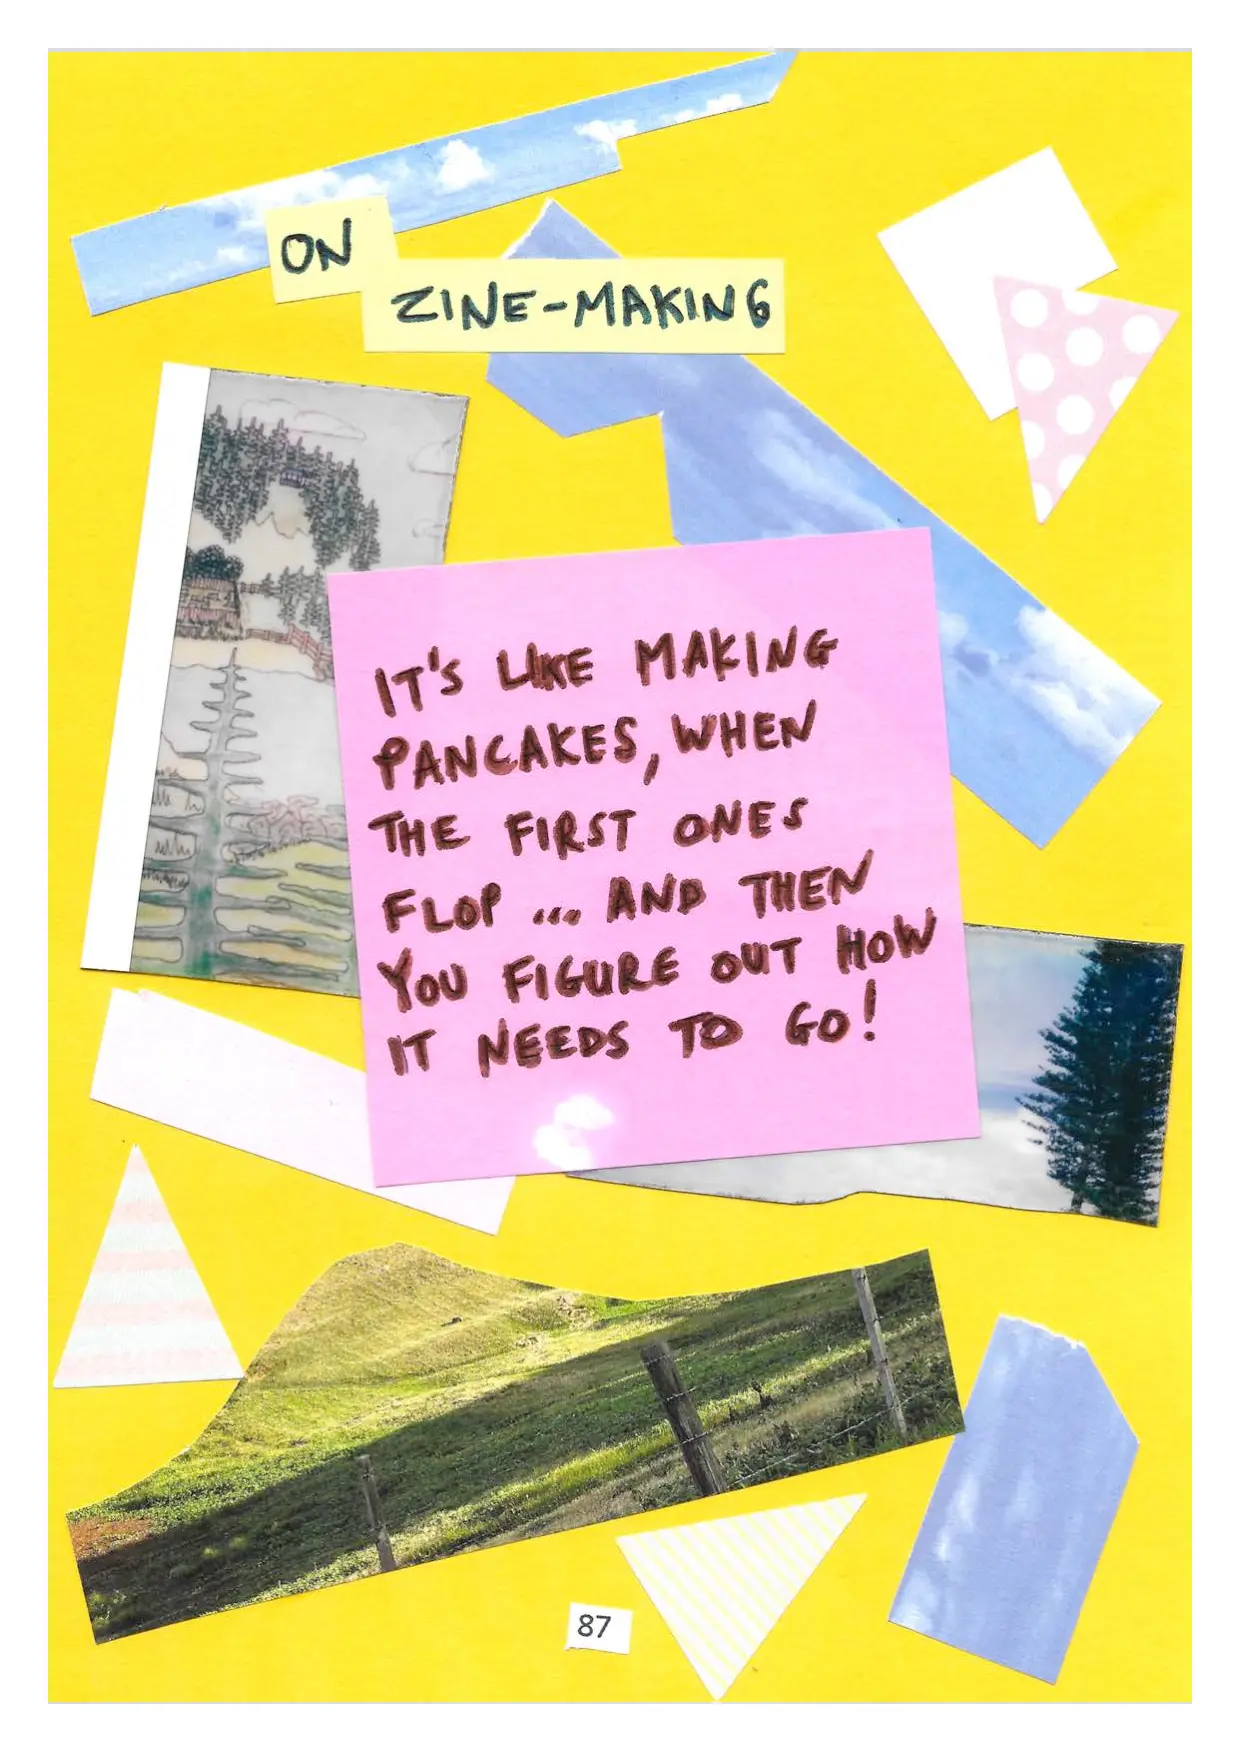 ON
ZINE-MAKING
IT'S LIKE MAKING
PANCAKES, WHEN
THE FIRST ONES
FLOP ... AND THEN
YOU FIGURE OUT HOW
IT NEEDS TO GO!
87